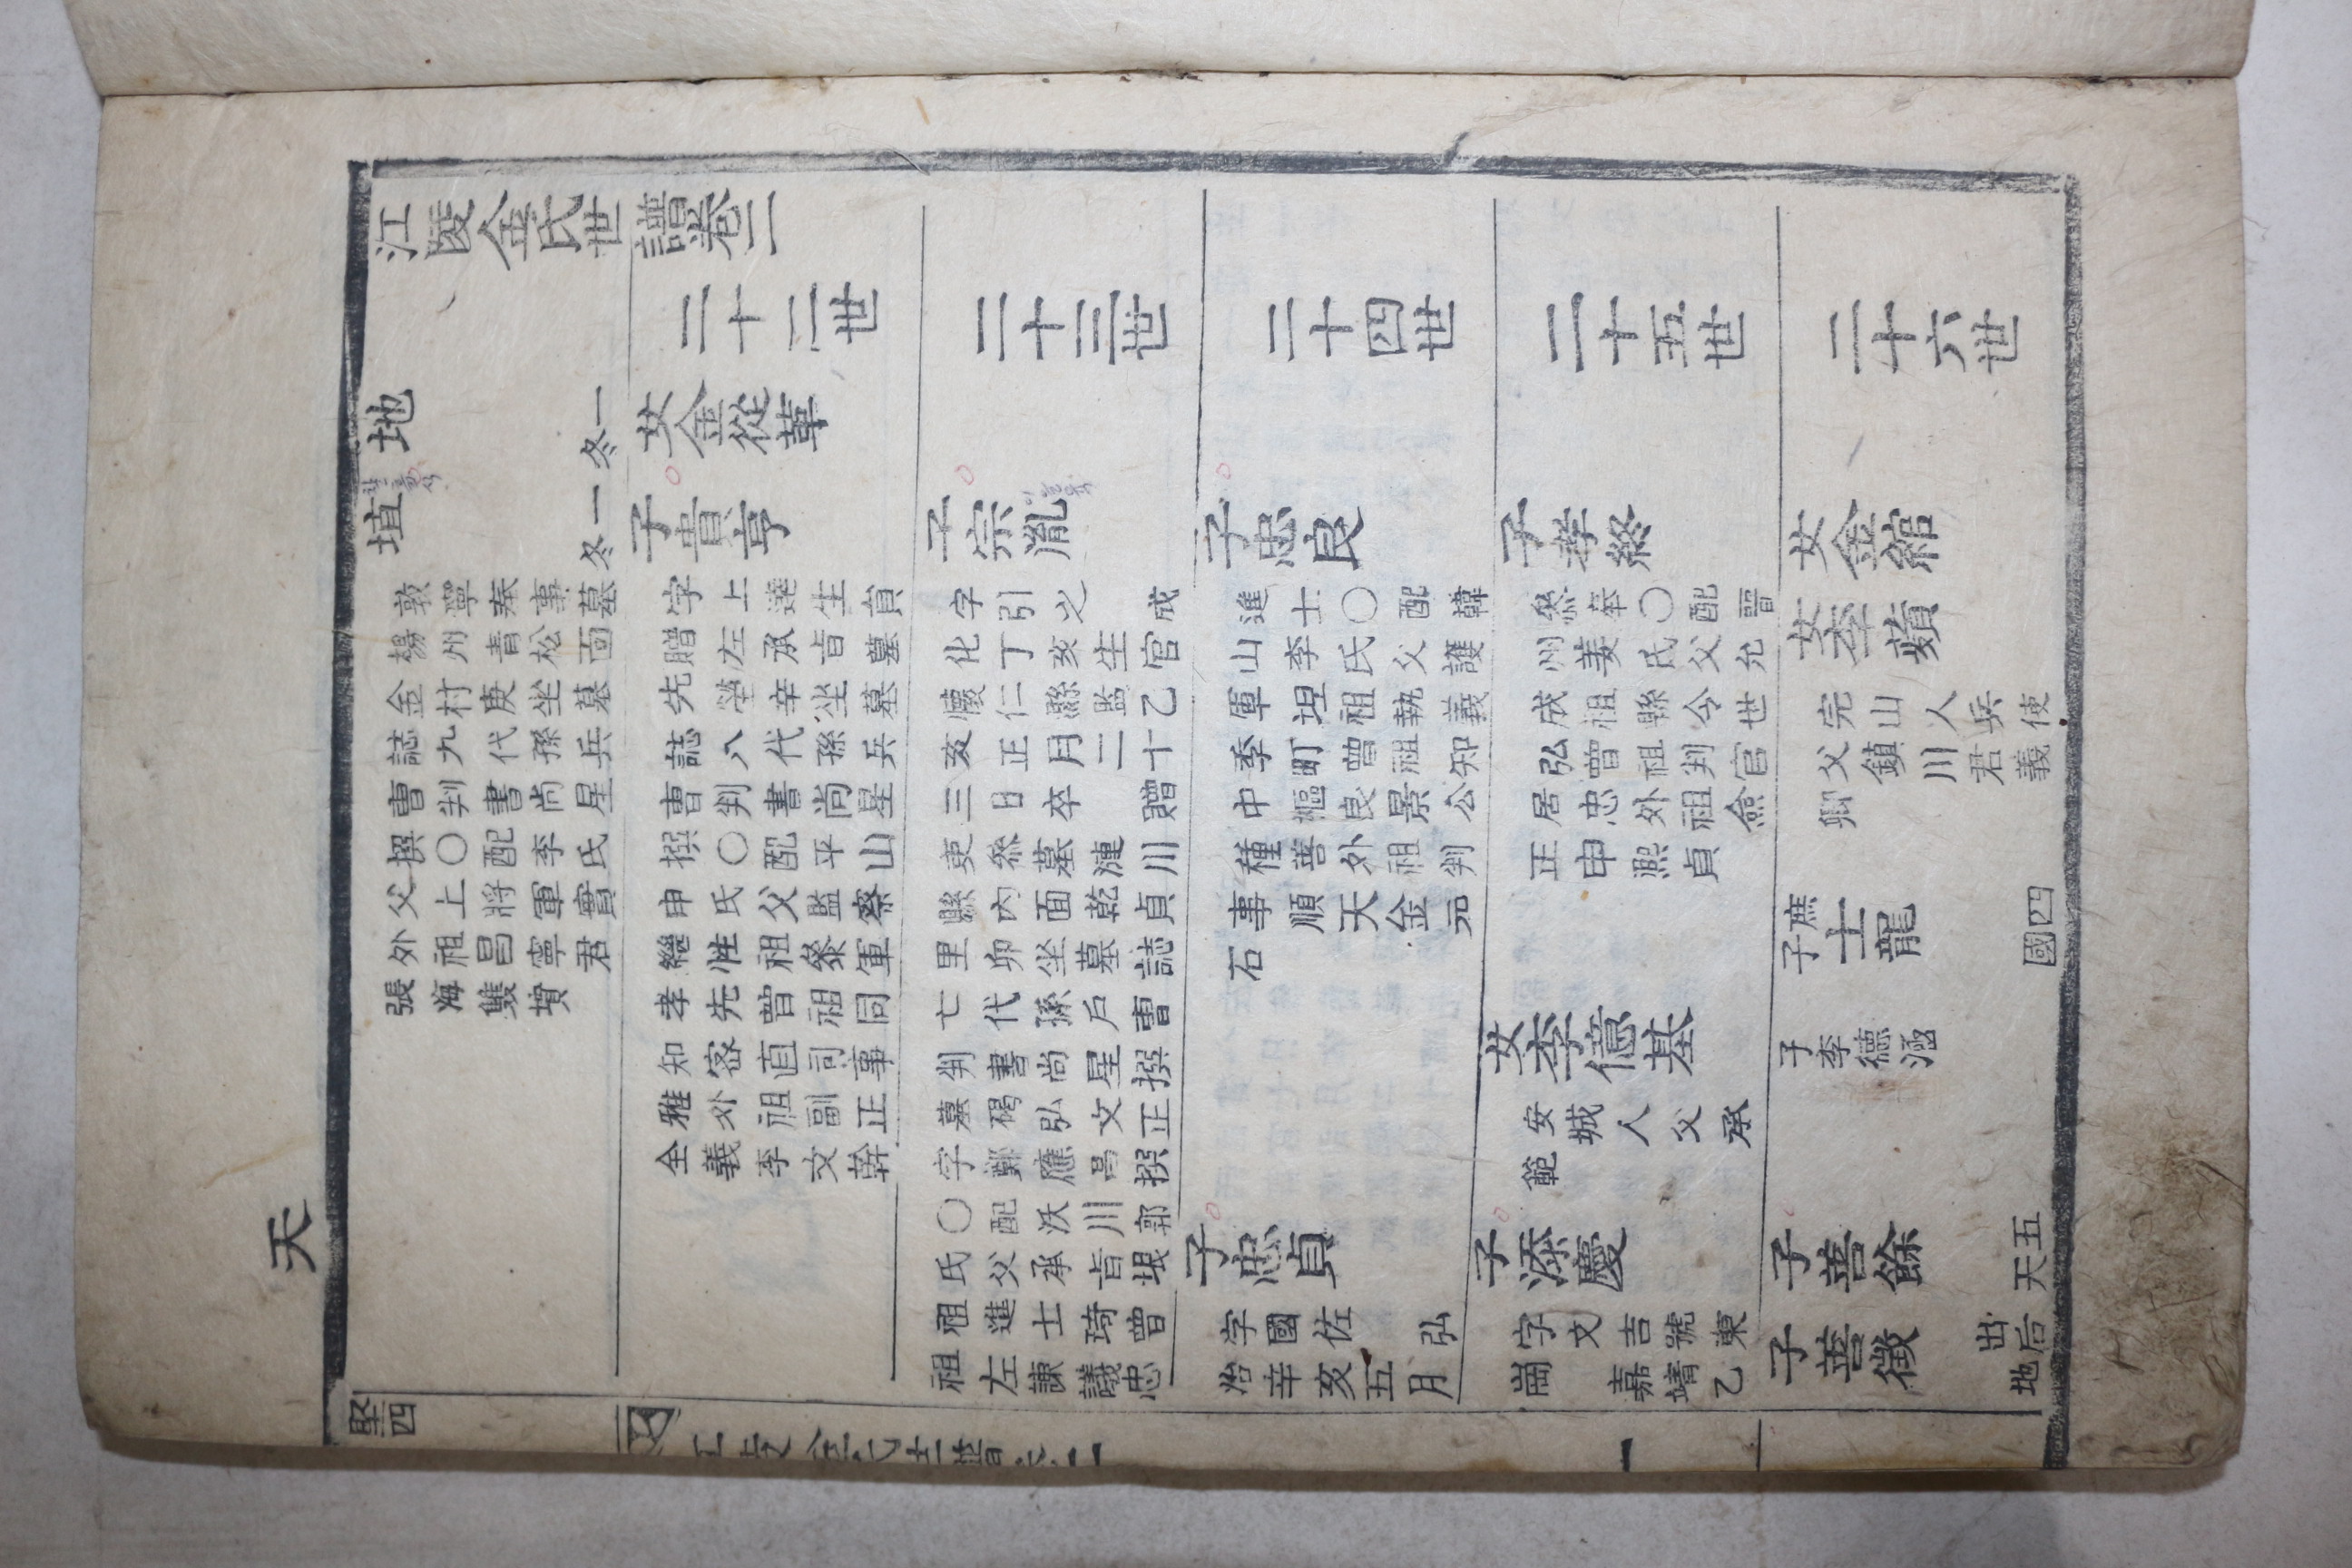 天
江陵金氏世譜卷二
地
一冬
埴
一冬
敦寧奉事墓
楊州青松面
金村庚坐墓
誌九代孫兵
曹判書尚星
撰〇配李氏
父上將軍實
外祖昌寧君
張海雙墳
二十二世
女金從革
子貴亨
字上達生員
贈左承旨墓
先塋辛坐墓
誌八代孫兵
曹判書尚星
撰〇配平山
申氏父監察
繼性祖叅軍
孝先曾祖同
知密直司事
雅外祖副正
全義李文幹
二十三世
子宗胤
字引之 成
化丁亥生官
懷仁縣監乙
亥正月二十
三日卒 贈
吏叅墓漣川
縣內面乾貞
里卯坐墓誌
七代孫戶曹
判書尚星撰
墓碣弘文正
字鄭應昌撰
〇配沃川郭
氏父承旨垠
祖進士琦曾
祖左諫議忠
二十四世
子忠良
進士〇配韓
山李氏父護
軍坦祖執義
季町曾祖知
中樞良景公
種善外祖判
事順天金元
石
子忠貞
字國佐 弘
治辛亥五月
二十五世
子孝終
叅奉〇配晋
州姜氏父允
成祖縣令世
弘曾祖判官
居忠外祖僉
正申凞貞
女李億基
安城人父承
範
子添慶
字文吉號東
崗 嘉靖乙
二十六世
女金綰
女李蘋
完山人兵使
父鎮川君義
卿
庶子士龍
四國
子李德涵
子善餘
五天
子善徵
出后
地
堅四
江陵金氏世譜卷二
一